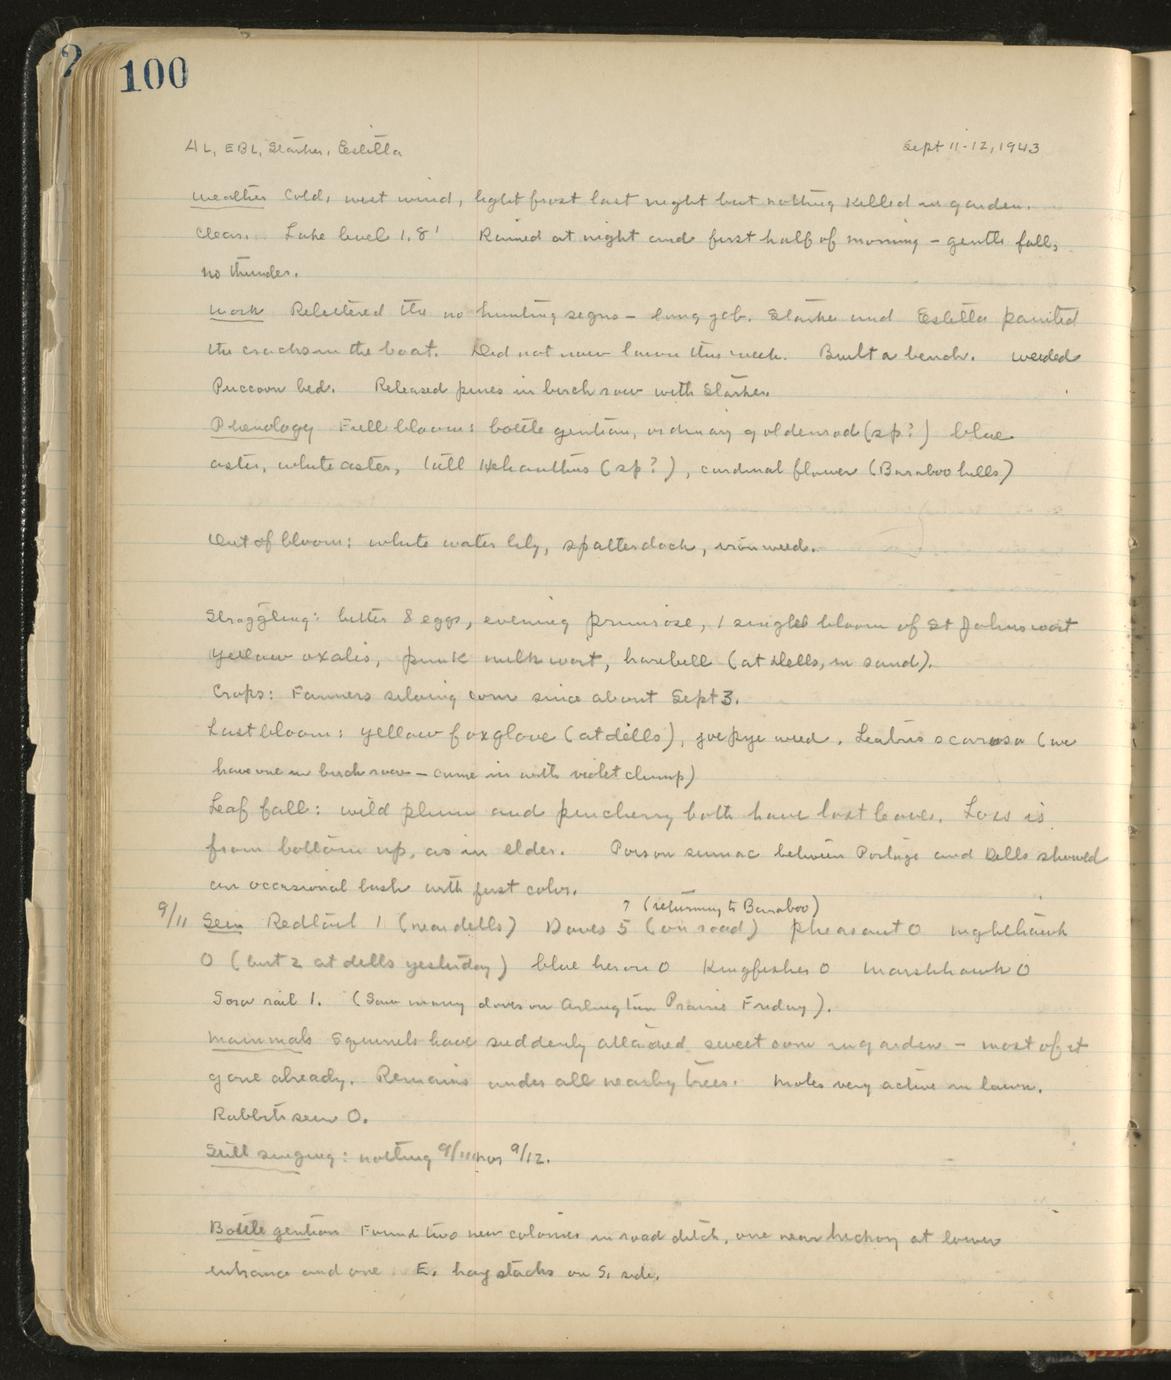 100
AL, EBL, Starker, Estella Sept 11-12, 1943
Weather Cold, west wind, light frost last night but nothing killed in garden.
Clear. Lake level 1.8' Rained at night and first half of morning - gentle fall,
no thunder.
Work Relettered the no hunting signs - long job. Starker and Estella painted
the cracks in the boat. Did not mow lawn this week. Built a bench. Weeded
Puccoon bed. Released pines in birch row with Starker.
Phenology Full bloom: bottle gentian, ordinary goldenrod (sp?) blue
aster, white aster, tall Helianthus (sp?), cardinal flower (Baraboo hills)
Out of bloom: white water lily, spatterdock, ironweed.
Straggling: butter & eggs, evening primrose, 1 single bloom of St Johnswort
yellow oxalis, pink milkwort, harebell (at Dells, in sand).
Crops: Farmers siloing corn since about Sept 3.
Last bloom: yellow foxglove (at dells), joe pye weed, Leatris scariosa (we
have one in birch row - came in with violet clump)
Leaf fall: wild plum and pincherry both have lost leaves. Loss is
from bottom up, as in elder. Poison sumac between Portage and Dells showed
an occasional bush with first color.
? (returning to Baraboo)
9/11 Seen Redtail 1 (near dells) Doves 5 (on road) pheasant 0 nighthawk
0 (but 2 at dells yesterday) blue heron 0 Kingfisher 0 Marshhawk 0
Sora rail 1. (Saw many doves on Arlington Prairie Friday).
Mammals Squirrels have suddenly attacked sweet corn in garden - most of it
gone already. Remains under all nearby trees. Moles very active in lawn.
Rabbits seen 0.
Still singing: nothing 9/11 nor 9/12.
Bottle gentian Found two new colonies in road ditch, one near hickory at lower
entrance and one E. haystacks on S. side.